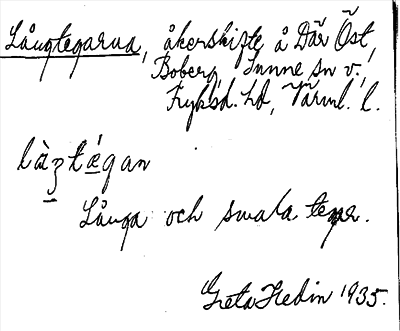 Långtegarna, åkerskifte å Där Öst,
Boberg, Sunne sn v.,
Fryksd. hd, Värml. l.
làŋtǽgan
Långa och smala tegar.
Greta Hedin 1935.